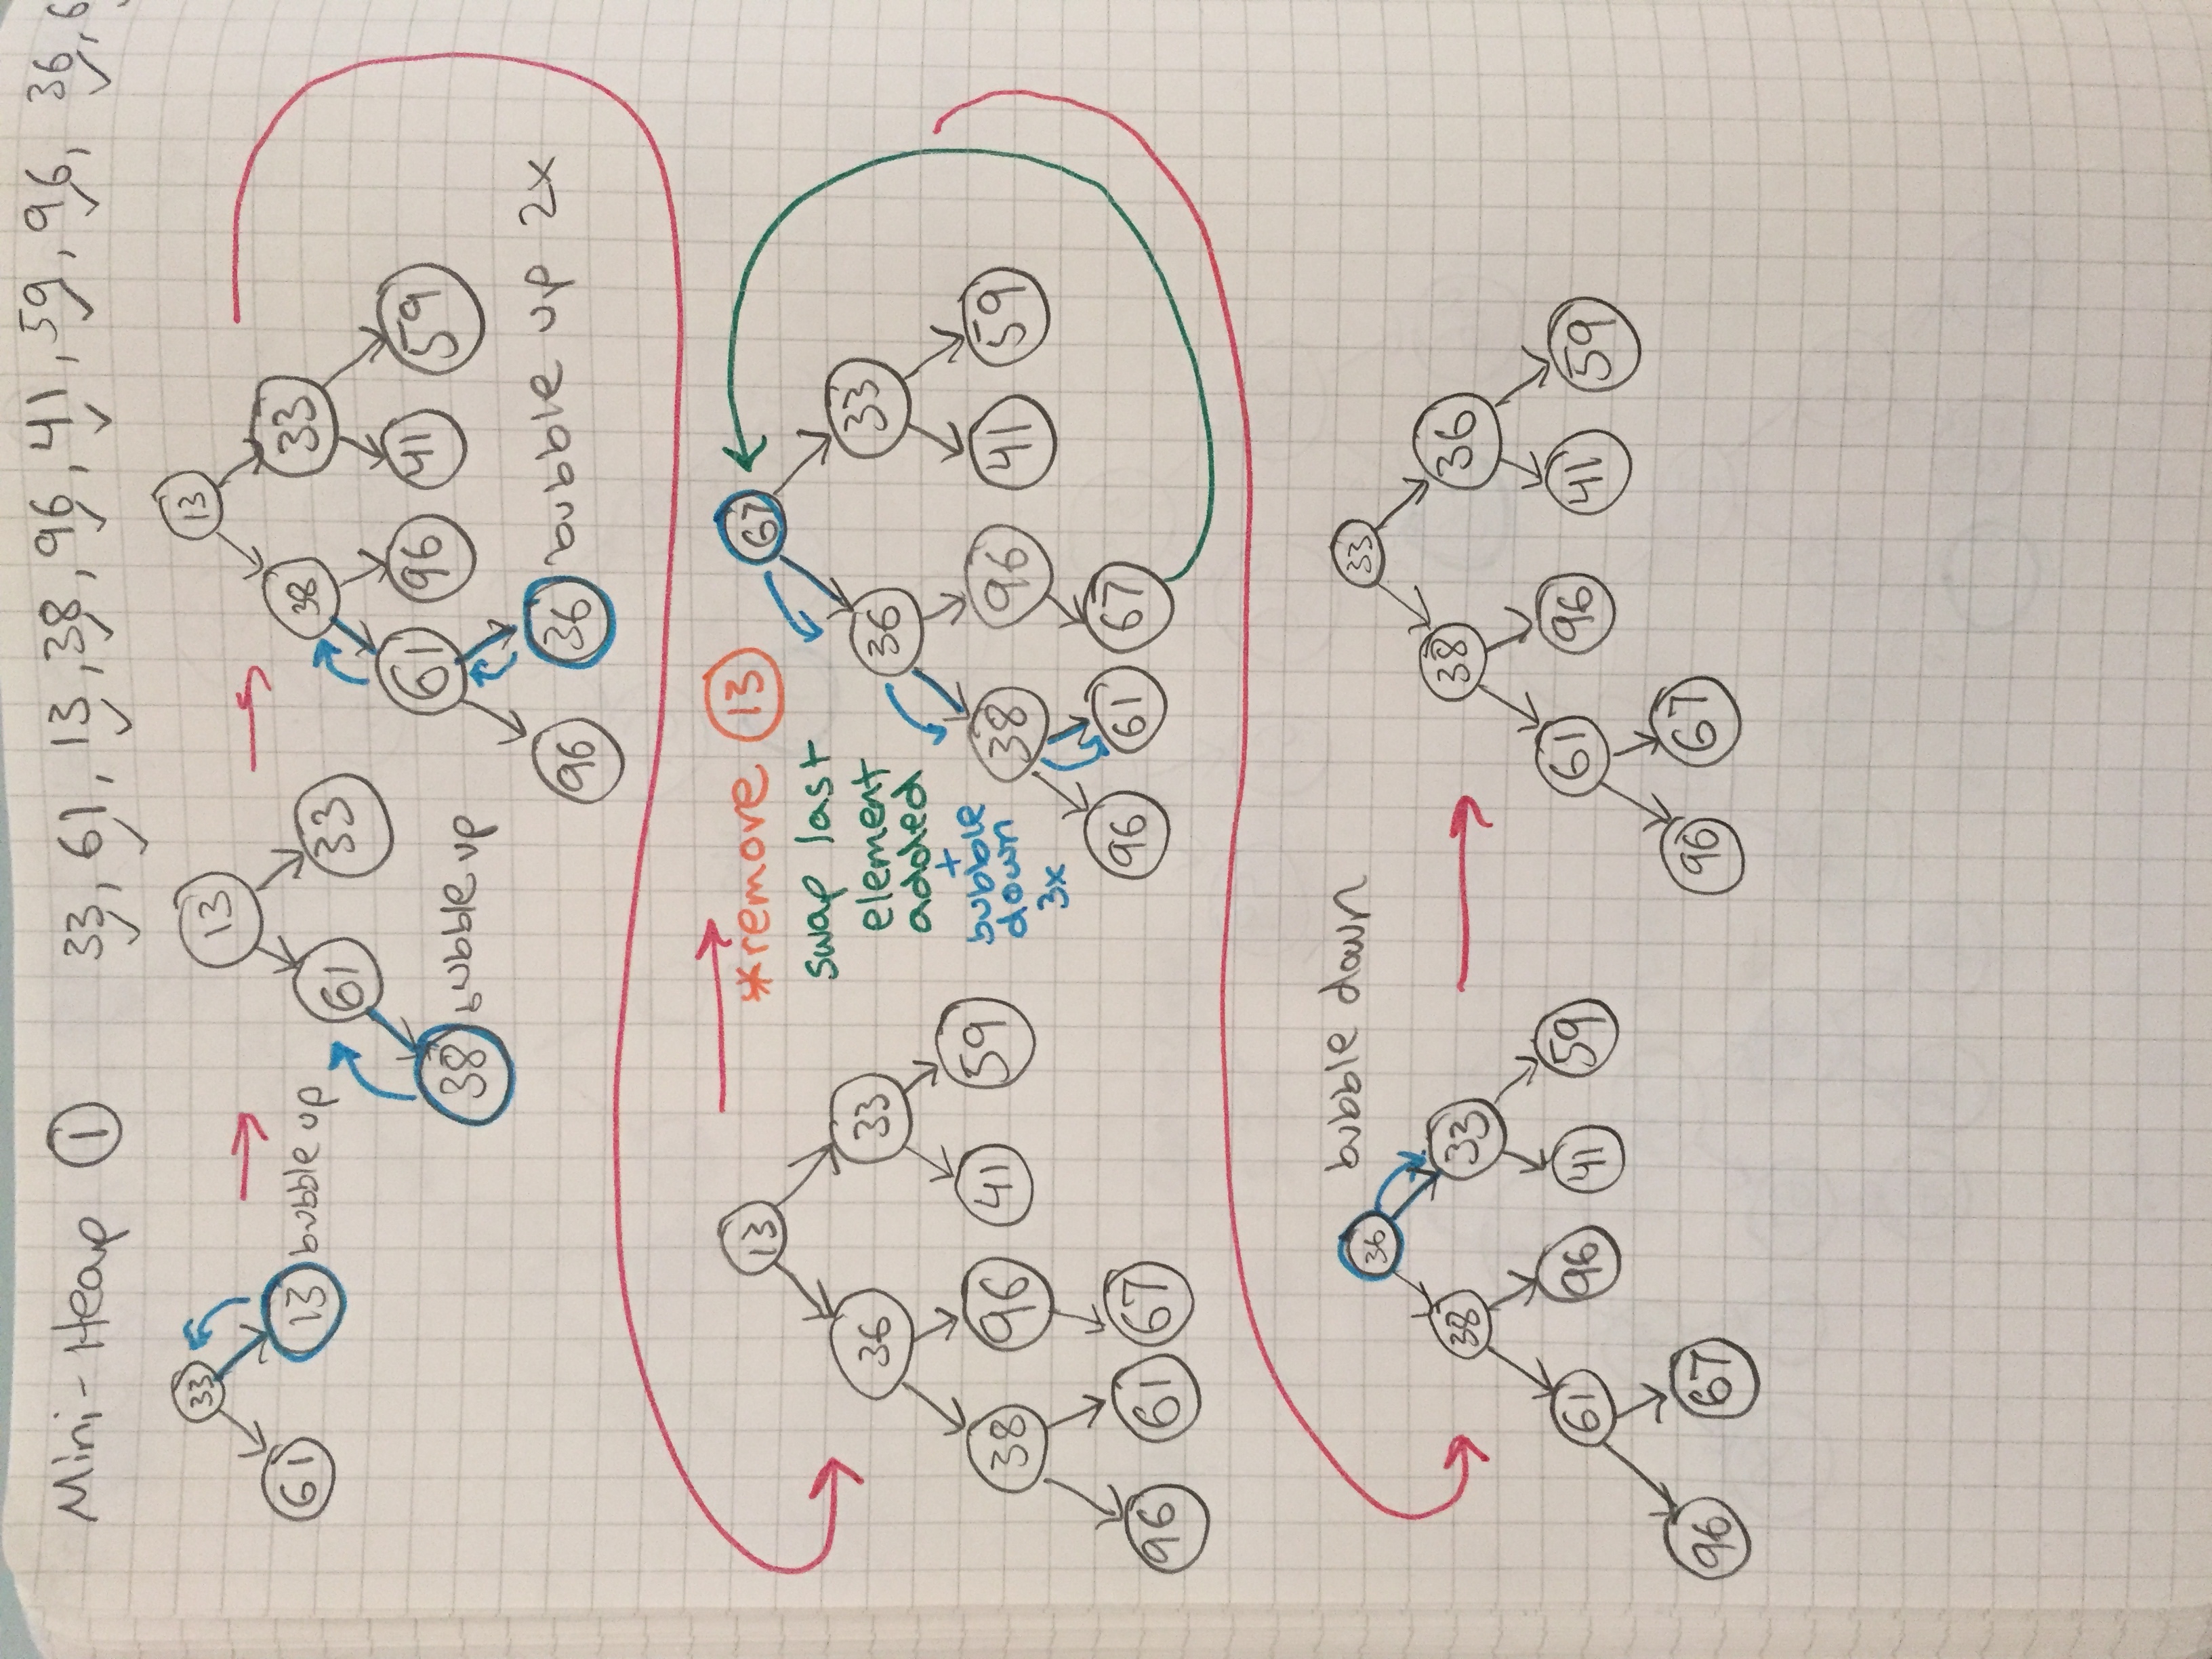 Mini-Heap 1 33, 61, 13, 38, 96, 41, 59, 96, 36, 6
33
61 13 bubble up
13
61 33
38 bubble up
13
38 33
61 96 41 59
96 36 bubble up 2x
13
36 33
38 96 41 59
96 61 67
*remove 13
swap last
element
added
+
bubble
down
3x
67
36 33
38 96 41 59
96 61 67
36 bubble down
38 33
61 96 41 59
96 67
33
38 36
61 96 41 59
96 67